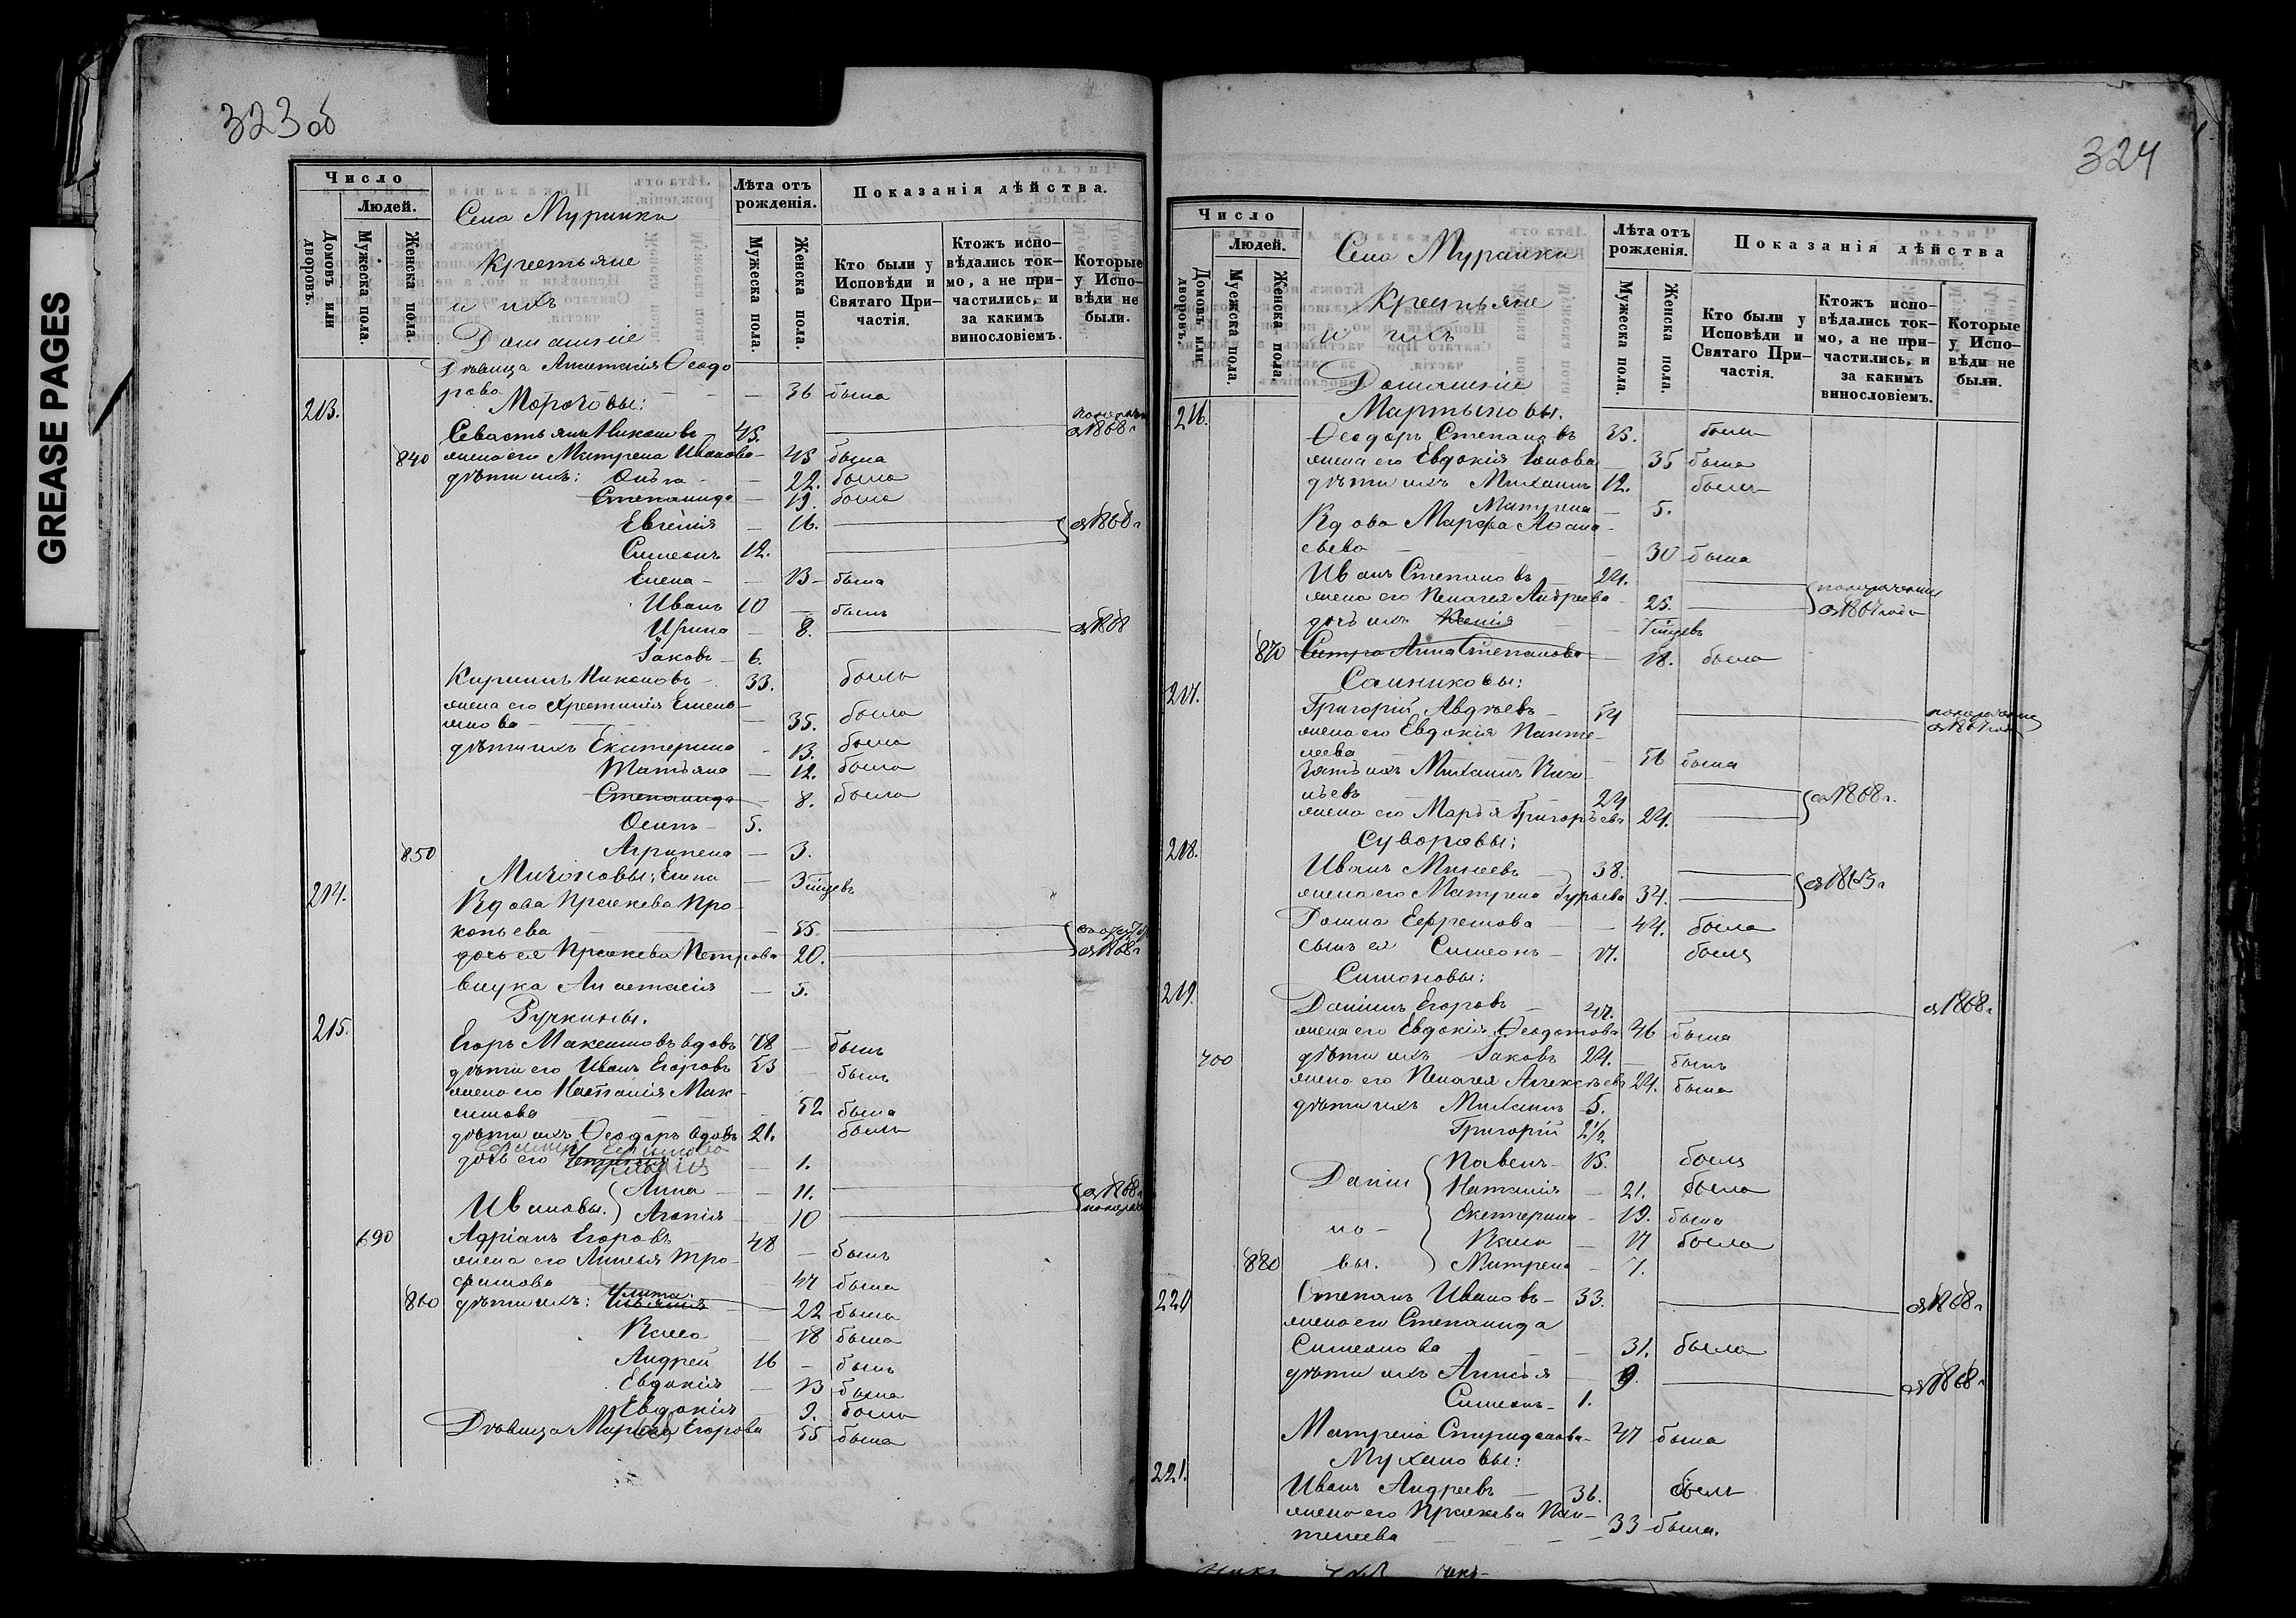 GREASE PAGES
323 об
Число
Людей.
Домовъ или дворовъ.
Мужеска пола.
Женска пола.
Села Муранки
Крестьяне
и ихъ
Домашніе
Лѣта отъ рожденія.
Мужеска пола.
Женска пола.
Показанія дѣйства.
Кто были у Исповѣди и Святаго Причастія.
Ктожъ исповѣдались токмо, а не причастились, и за какимъ винословіемъ.
Которые у Исповѣди не были.
Дѣвица Анастасія Ѳеодо
рова — — 36 была
213. Морозовы:
Севастьянъ Никоновъ 45.
съ 1868 г
840 жена его Матрена Иванова 45 была
дѣти ихъ: Ольга — 22. была
Степанида — 19. была
Евгенія — 16. съ 1868 г
Симеонъ 12.
Елена — 13 — была
Иванъ 10 — былъ
Ирина — 8. съ 1868
Іаковъ — 6.
Кириллъ Никоновъ 33. былъ
жена его Христинія Емель
янова — 35. была
дѣти ихъ Екатерина — 13. была
Татьяна — 12. была
Степанида 8. была
Осипъ — 5.
850 Агрипена — 3.
Елена — 3 мѣсяцевъ
214.
Вдова Прасковья Про
копьева — 55.
дочь ея Прасковья Петрова 20. съ 1868 г
внука Анастасія — 5.
215. Ручкины.
Егоръ Максимовъ вдовъ 78 — былъ
дѣти его Иванъ Егоровъ 53 — былъ
жена его Наталія Мак
симова — 52 была
дѣти ихъ Ѳеодоръ вдовъ 21. былъ
дочь его — 1.
Ивановы. Анна — 11. съ 1868 г
Агапія — 10
690 Адріанъ Егоровъ 48 — былъ
жена его Анисья Тро
фимова — 47 была
860 дѣти ихъ: Улита 22 была
Васса — 18 была
Андрей 16 — былъ
Евдокія — 13 была
Евдокія 9. была
Дѣвица Егорова 55 была
324
Число
Людей.
Домовъ или дворовъ.
Мужеска пола.
Женска пола.
Села Муранки
Крестьяне
и ихъ
Домашніе
Лѣта отъ рожденія.
Мужеска пола.
Женска пола.
Показанія дѣйства
Кто были у Исповѣди и Святаго Причастія.
Ктожъ исповѣдались токмо, а не причастились, и за какимъ винословіемъ.
Которые у Исповѣди не были.
216. Мартыновы.
Ѳеодоръ Степановъ 35. былъ
жена его Евдокія 35 была
дѣти ихъ Михаилъ 12. былъ
Матрена — 5.
Вдова Марфа Аѳана
сьева — 30 была
Иванъ Степановъ — 24.
жена его Пелагея Андреева 25. съ 1867 года
дочь ихъ Ксенія — 7 мѣсяцевъ
870 Сестра Анна Степанова 18. была
217. Сальниковы:
Григорій Авдѣевъ — 54
съ 1867 года
жена его Евдокія Панте
леева — 56 была
Зять ихъ Михаилъ
24 съ 1868 г.
жена его Марья Григорьева 24.
218. Суворовы:
Иванъ Минеевъ — 38. съ 1863 г
жена его Матрена Гурьева 34.
Домна Ефремова — 44. была
сынъ ея Симеонъ — 17. былъ
219. Симоновы:
Даніилъ Егоровъ — 47. съ 1868 г
жена его Евдокія Ѳеодотова 46 была
700 дѣти ихъ Іаковъ 24. — былъ
жена его Пелагея Алексѣева 24. была
дѣти ихъ Михаилъ — 5.
Григорій 2½
Дани Павелъ — 15. былъ
Наталія — 21. была
ло — Екатерина — 19. была
Васса — 17 была
880 вы. Матрена — 7.
220 Степанъ Ивановъ — 33. съ 1868 г
жена его Степанида
Симеонова — 31. была
дѣти ихъ Анисья — 9. съ 1868 г
Симеонъ — 1.
Матрена Спиридонова — 47 была
221. Мухановы:
Иванъ Андреевъ — 36. былъ
жена его Прасковья Пан
телеева — 33 была.